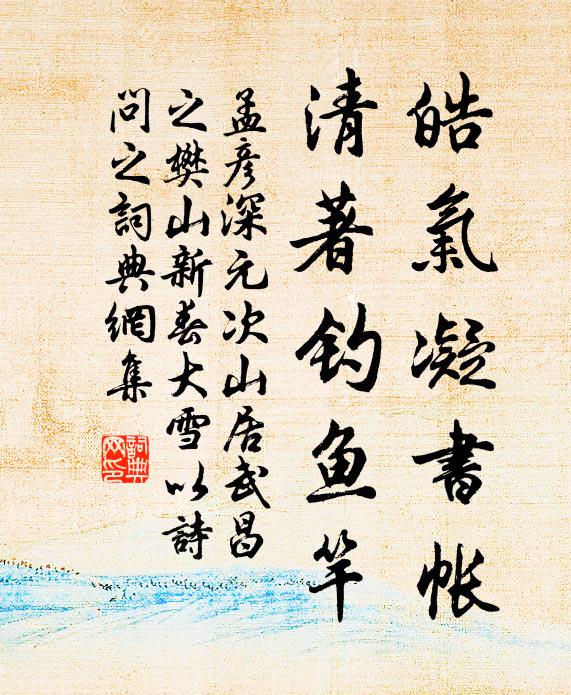 皓氣凝書帳
清著釣鱼竿
孟彦深元次山居武昌
之樊山新春大雪以詩
问之詞典網集
詞典网印